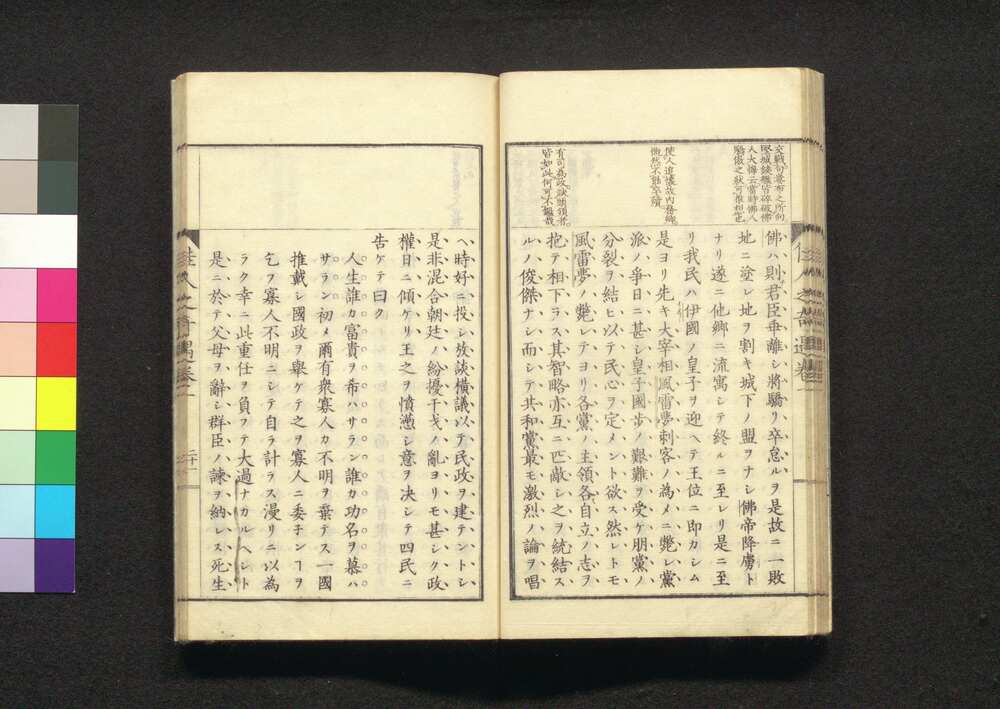 交戰句麥布之所向
堅城鐵艦皆碎破佛
人大悔云當時佛人
驕傲之狀可推想也
使人追懷故內務卿
慨然不能卒讀
有司爲政狀黨領者
皆如此何可不鑑哉
佛ハ則君臣乖離シ將驕リ卒怠ルヲ是故ニ一敗
地ニ塗レ地ヲ割キ城下ノ盟ヲナシ佛帝降虜ト
ナリ遂ニ他鄉ニ流寓シテ終ルニ至レリ是ニ至
リ我民ハ伊國ノ皇子ヲ迎ヘテ王位ニ即カシム
是ヨリ先キ大宰相風雷夢刺客ノ爲メニ斃レ黨
派ノ爭日ニ甚シ皇子國步ノ艱難ヲ受ケ朋黨ノ
分裂ヲ結ヒ以テ民心ヲ定メント欲ス然レトモ
風雷夢ノ斃レテヨリ各黨ノ主領各自立ノ志ヲ
抱テ相下ラス其智略亦互ニ匹敵シ之ヲ統結ス
ルノ俊傑ナシ而シテ共和黨最モ激烈ノ論ヲ唱
佳人之奇遇卷二
ヘ時好ニ投シ放談橫議以テ民政ヲ建テントシ
是非混合朝廷ノ紛擾干戈ノ亂ヨリモ甚シク政
權日ニ傾ケリ王之ヲ憤懣シ意ヲ决シテ四民ニ
告ケテ曰ク
人生誰カ富貴ヲ希ハサラン誰カ功名ヲ慕ハ
サラン初メ爾有衆寡人カ不明ヲ棄テス一國
推戴シ國政ヲ擧ケテ之ヲ寡人ニ委チンヿヲ
乞フ寡人不明ニシテ自ラ計ラス漫リニ以爲
ラク幸ニ此重任ヲ負フテ大過ナカルヘシト
是ニ於テ父母ヲ辭シ群臣ノ諫ヲ納レス死生
佳人之奇遇卷二
二十一